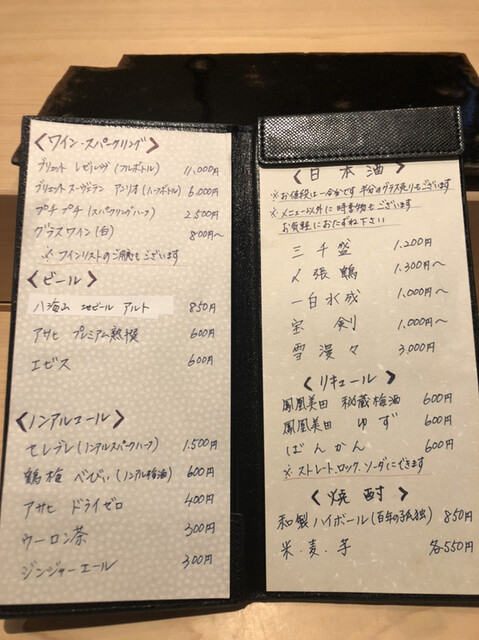 <ワイン・スパークリング>
ブリュット レゼルヴ (フルボトル) 11,000円
ブリュット スーヴェラン アンリオ (ハーフボトル) 6,000円
プチプチ (スパークリングハーフ) 2,500円
グラスワイン (白) 800円〜
※ ワインリストのご用意もございます
<ビール>
八海山 地ビール アルト 850円
アサヒ プレミアム熟撰 600円
エビス 600円
<ノンアルコール>
セレブレ (ノンアルスパークハーフ) 1,500円
鶴梅 べびぃ (ノンアル梅酒) 600円
アサヒ ドライゼロ 400円
ウーロン茶 300円
ジンジャーエール 300円
<日本酒>
※ お値段は一合です 半合グラス売りもございます
※ メニュー以外に時季物もございます
お気軽におたずね下さい
三千盛 1,200円
〆張鶴 1,300円〜
一白水成 1,000円〜
宝剣 1,000円〜
雪漫々 3,000円
<リキュール>
鳳凰美田 秘蔵梅酒 600円
鳳凰美田 ゆず 600円
ばんかん 600円
※ ストレート、ロック、ソーダにできます
<焼酎>
和製ハイボール (百年の孤独) 850円
米・麦・芋 各550円